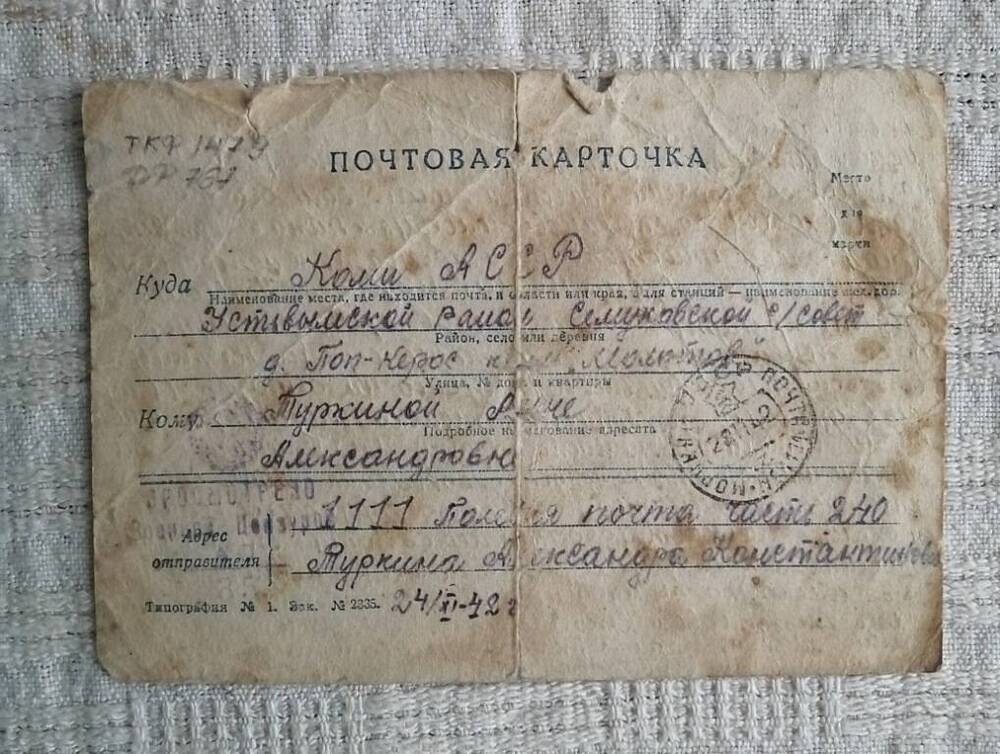 ТКФ 1479
ДР 767
ПОЧТОВАЯ КАРТОЧКА
Место
для
марки
Куда Коми АССР
Наименование места, где находится почта, и области или края, а для станций — наименование жел. дор.
Устьвымской район Семуковской с/совет
Район, село или деревня
д. Поп-Керос
Улица, № дома и квартиры
Кому Туркиной Анне
Подробное наименование адресата
Александровне
Адрес отправителя
1111 Полевая почта часть 240
Туркина Александра Константиновича
Типография № 1. Зак. № 2335. 24/XI-42 г